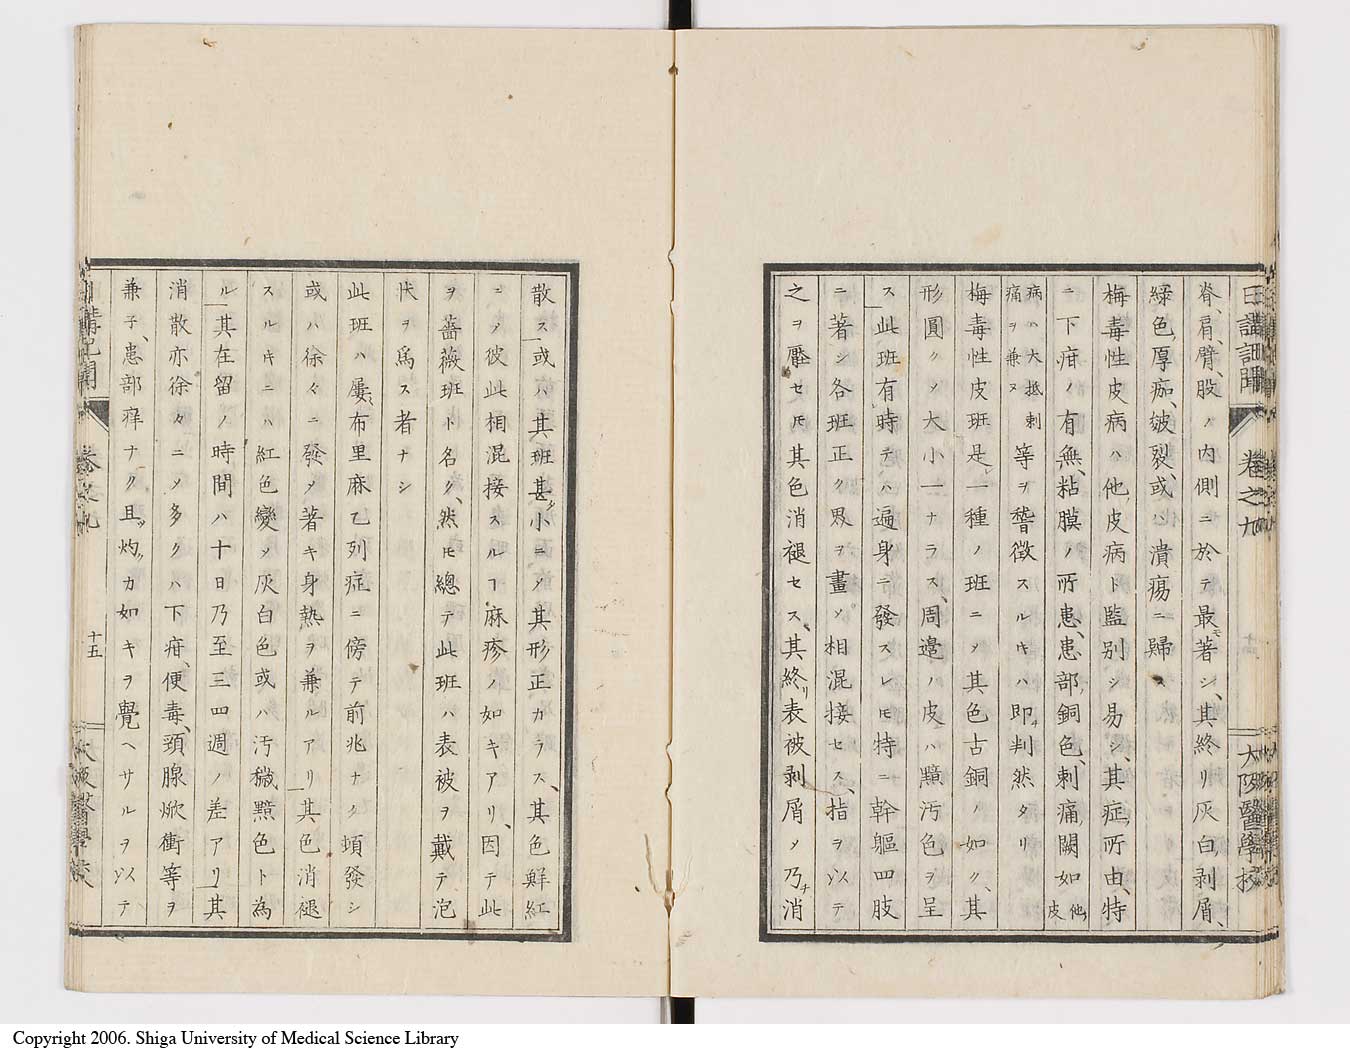 日講記聞 卷之九 大阪醫學校
脊、肩、臂、股ノ内側ニ於テ最モ著シ、其終リ灰白剥屑、
緑色厚痂、皴裂、或ハ潰瘍ニ歸ス
梅毒性皮病ハ他ノ皮病ト監別シ易シ、其症ノ所由、特
ニ下疳ノ有無、粘膜ノ所患、患部ノ銅色、刺痛ノ闕如他ノ皮
病ハ大抵刺痛ヲ兼ヌ等ヲ稽徴スルキハ即チ判然タリ
梅毒性皮斑是レ一種ノ斑ニメ其色古銅ノ如ク、其
形圓クメ大小一ナラス、周邉ノ皮ハ黯汚色ヲ呈
ス此斑有時テハ遍身ニ發スレ𪜈特ニ幹軀四肢
ニ著シ各斑正ク界ヲ畫メ相混接セス、指ヲ以テ
之ヲ壓セ𪜈其色消褪セス、其終リ表被剥屑メ乃チ消
散ス或ハ其斑甚タ小ニメ其形正カラス、其色鮮紅
ニメ彼此相混接スルヿ麻疹ノ如キアリ、因テ此
ヲ薔薇斑ト名ク、然𪜈總テ此斑ハ表被ヲ戴テ泡
状ヲ爲ス者ナシ
此斑ハ屡〻布里麻乙列症ニ傍テ前兆ナク頓發シ
或ハ徐々ニ發メ著キ身熱ヲ兼ルアリ其色消褪
スルキニハ紅色變メ灰白色或ハ汚穢黯色ト為
ル其在留ノ時間ハ十日乃至三四週ノ差アリ其
消散亦徐々ニメ多クハ下疳、便毒、頸腺焮衝等ヲ
兼子、患部痒ナク且ツ灼クカ如キヲ覺ヘサルヲ以テ
日講記聞 卷之九 十五 大阪醫學校
Copyright 2006. Shiga University of Medical Science Library